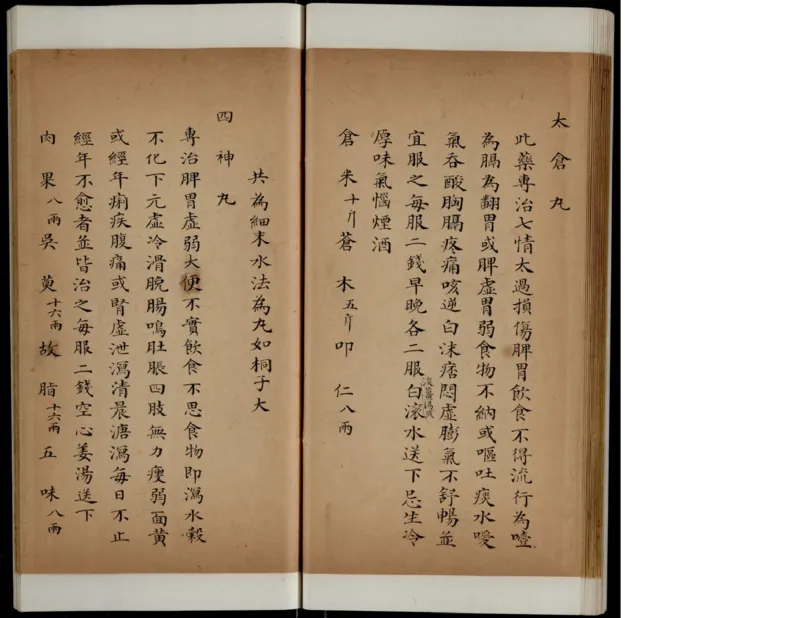 太倉丸
此藥專治七情太過損傷脾胃飲食不得流行為噎
為膈為翻胃或脾虛胃弱食物不納或嘔吐痰水噯
氣吞酸胸膈疼痛咳逆白沫痞悶虛膨氣不舒暢並
宜服之每服二錢早晚各二服白滾水送下忌生冷
厚味氣惱煙酒
倉米十斤蒼木五斤叩仁八兩
共為細末水法為丸如桐子大
四神丸
專治脾胃虛弱大便不實飲食不思食物即瀉水穀
不化下元虛冷滑脫腸鳴肚脹四肢無力瘦弱面黃
或經年痢疾腹痛或腎虛泄瀉清晨溏瀉每日不止
經年不愈者並皆治之每服二錢空心姜湯送下
肉果八兩吳萸十六兩故脂十六兩五味八兩